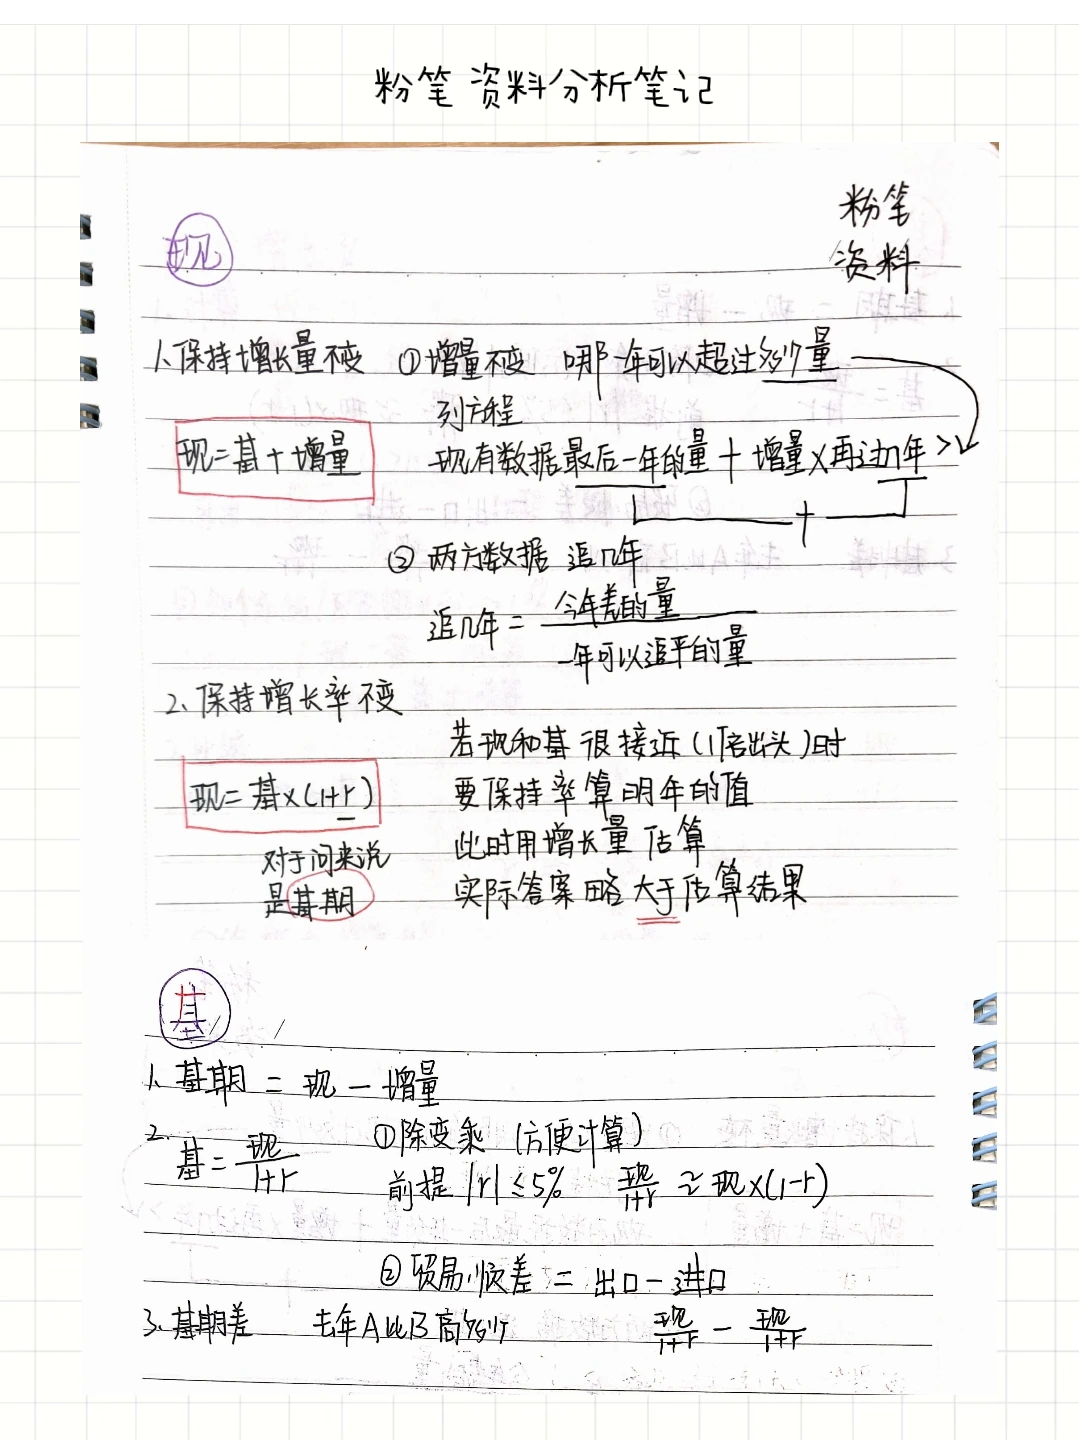 粉笔 资料分析笔记
粉笔
资料
现
1、保持增长量不变 ①增量不变 哪年可以超过多少量
列方程
现=基+增量 现有数据最后一年的量+增量×再过几年>
+
② 两方数据 追几年
追几年 = 今年差的量
一年可以追平的量
2、保持增长率不变
若现和基很接近(1倍出头)时
现=基×(1+r) 要保持率算明年的值
此时用增长量估算
对于问来说
是基期 实际答案略大于估算结果
基
1、基期 = 现 - 增量
2. 基 = 现/1+r ①除变乘 (方便计算)
前提 |r|≤5% 现/1+r ≈ 现×(1-r)
② 贸易顺差 = 出口-进口
3、基期差 去年A比B高多少 现/1+r - 现/1+r